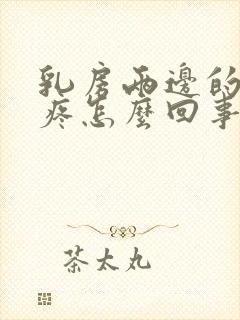 乳房兩邊的
疼怎麼回事
茶太丸